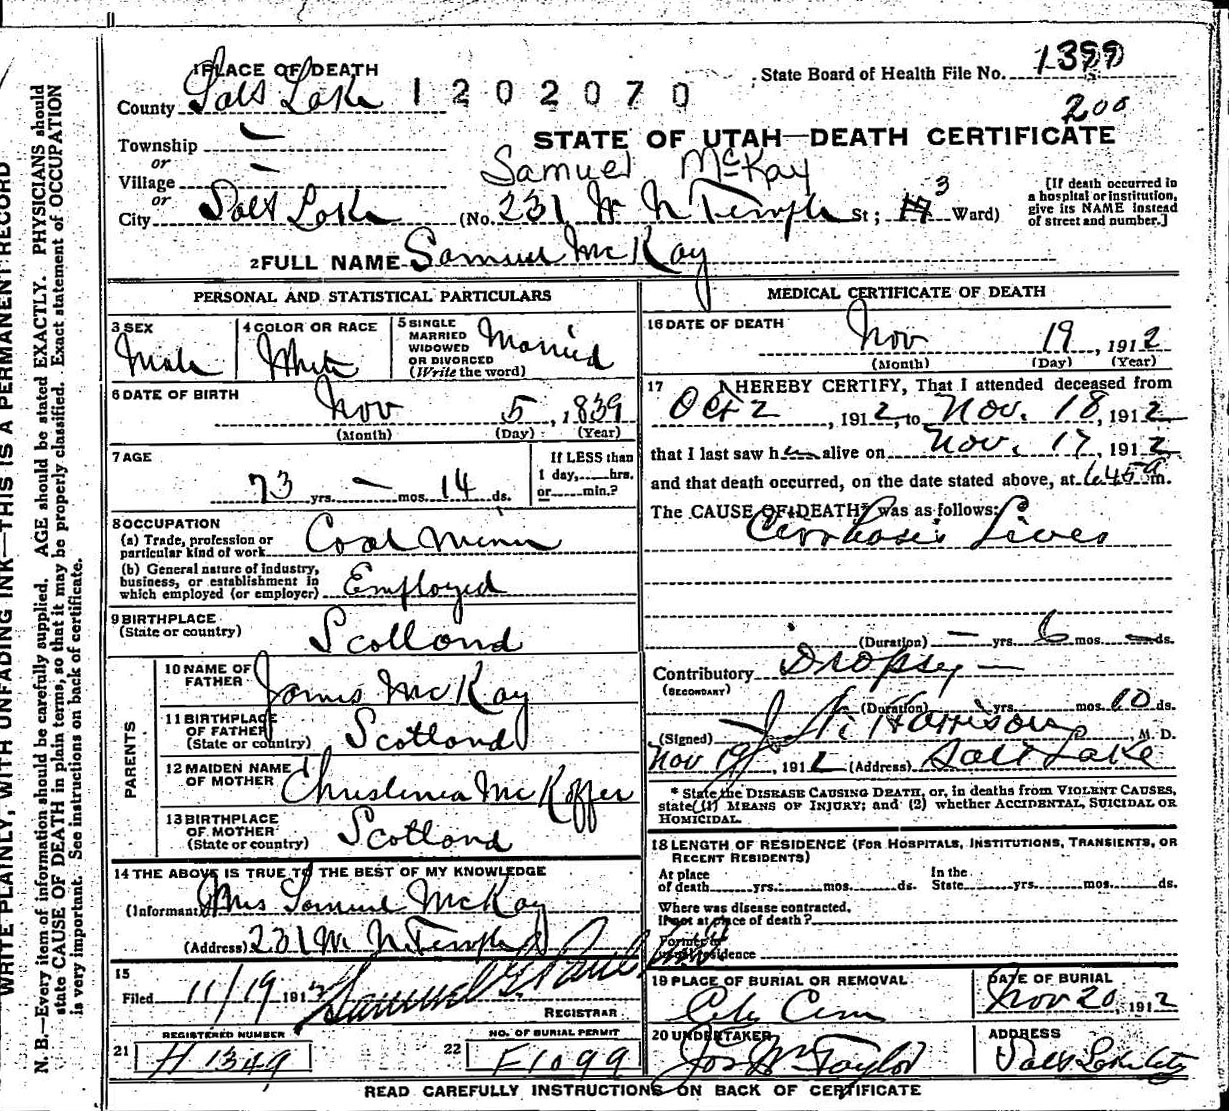 1 PLACE OF DEATH
State Board of Health File No. 1399
County Salt Lake 1202070
200
STATE OF UTAH—DEATH CERTIFICATE
Township
or
Village
Samuel McKay
or
City Salt Lake (No. 231 W N Temple St; 3 Ward)
[If death occurred in a hospital or institution, give its NAME instead of street and number.]
2 FULL NAME Samuel McKay
PERSONAL AND STATISTICAL PARTICULARS
3 SEX
Male
4 COLOR OR RACE
White
5 SINGLE MARRIED WIDOWED OR DIVORCED (Write the word)
Married
6 DATE OF BIRTH
Nov 5, 1839
(Month) (Day) (Year)
7 AGE
73 yrs. — mos. 14 ds.
If LESS than 1 day, hrs. or min.?
8 OCCUPATION
(a) Trade, profession or particular kind of work Coal Miner
(b) General nature of industry, business, or establishment in which employed (or employer) Employed
9 BIRTHPLACE
(State or country) Scotland
PARENTS
10 NAME OF FATHER James McKay
11 BIRTHPLACE OF FATHER (State or country) Scotland
12 MAIDEN NAME OF MOTHER Christinia McKoffer
13 BIRTHPLACE OF MOTHER (State or country) Scotland
14 THE ABOVE IS TRUE TO THE BEST OF MY KNOWLEDGE
(Informant) Mrs Samuel McKay
(Address) 231 W N. Temple
15
Filed 11/19 1912 Samuel G. Paul
REGISTRAR
REGISTERED NUMBER
21 H 1349
NO. OF BURIAL PERMIT
22 F1099
MEDICAL CERTIFICATE OF DEATH
16 DATE OF DEATH
Nov 19, 1912
(Month) (Day) (Year)
17 I HEREBY CERTIFY, That I attended deceased from
Oct 2, 1912, to Nov. 18, 1912
that I last saw h alive on Nov. 17, 1912
and that death occurred, on the date stated above, at 6.45 a m.
The CAUSE OF DEATH* was as follows:
Cerrhosis Liver
(Duration) — yrs. 6 mos. — ds.
Contributory Dropsy —
(SECONDARY)
(Duration) yrs. mos. 10 ds.
(Signed) Harrison, M. D.
Nov 19, 1912 (Address) Salt Lake
* State the DISEASE CAUSING DEATH, or, in deaths from VIOLENT CAUSES, state (1) MEANS OF INJURY; and (2) whether ACCIDENTAL, SUICIDAL OR HOMICIDAL.
18 LENGTH OF RESIDENCE (FOR HOSPITALS, INSTITUTIONS, TRANSIENTS, OR RECENT RESIDENTS)
At place of death yrs. mos. ds.
In the State yrs. mos. ds.
Where was disease contracted,
If not at place of death?
Former or usual residence
19 PLACE OF BURIAL OR REMOVAL
City Cem
DATE OF BURIAL
Nov 20, 1912
20 UNDERTAKER
Jos Wm Taylor
ADDRESS
Salt Lake City
READ CAREFULLY INSTRUCTIONS ON BACK OF CERTIFICATE
WRITE PLAINLY, WITH UNFADING INK—THIS IS A PERMANENT RECORD
N. B.—Every item of information should be carefully supplied. AGE should be stated EXACTLY. PHYSICIANS should
state CAUSE OF DEATH in plain terms, so that it may be properly classified. Exact statement of OCCUPATION
is very important. See instructions on back of certificate.